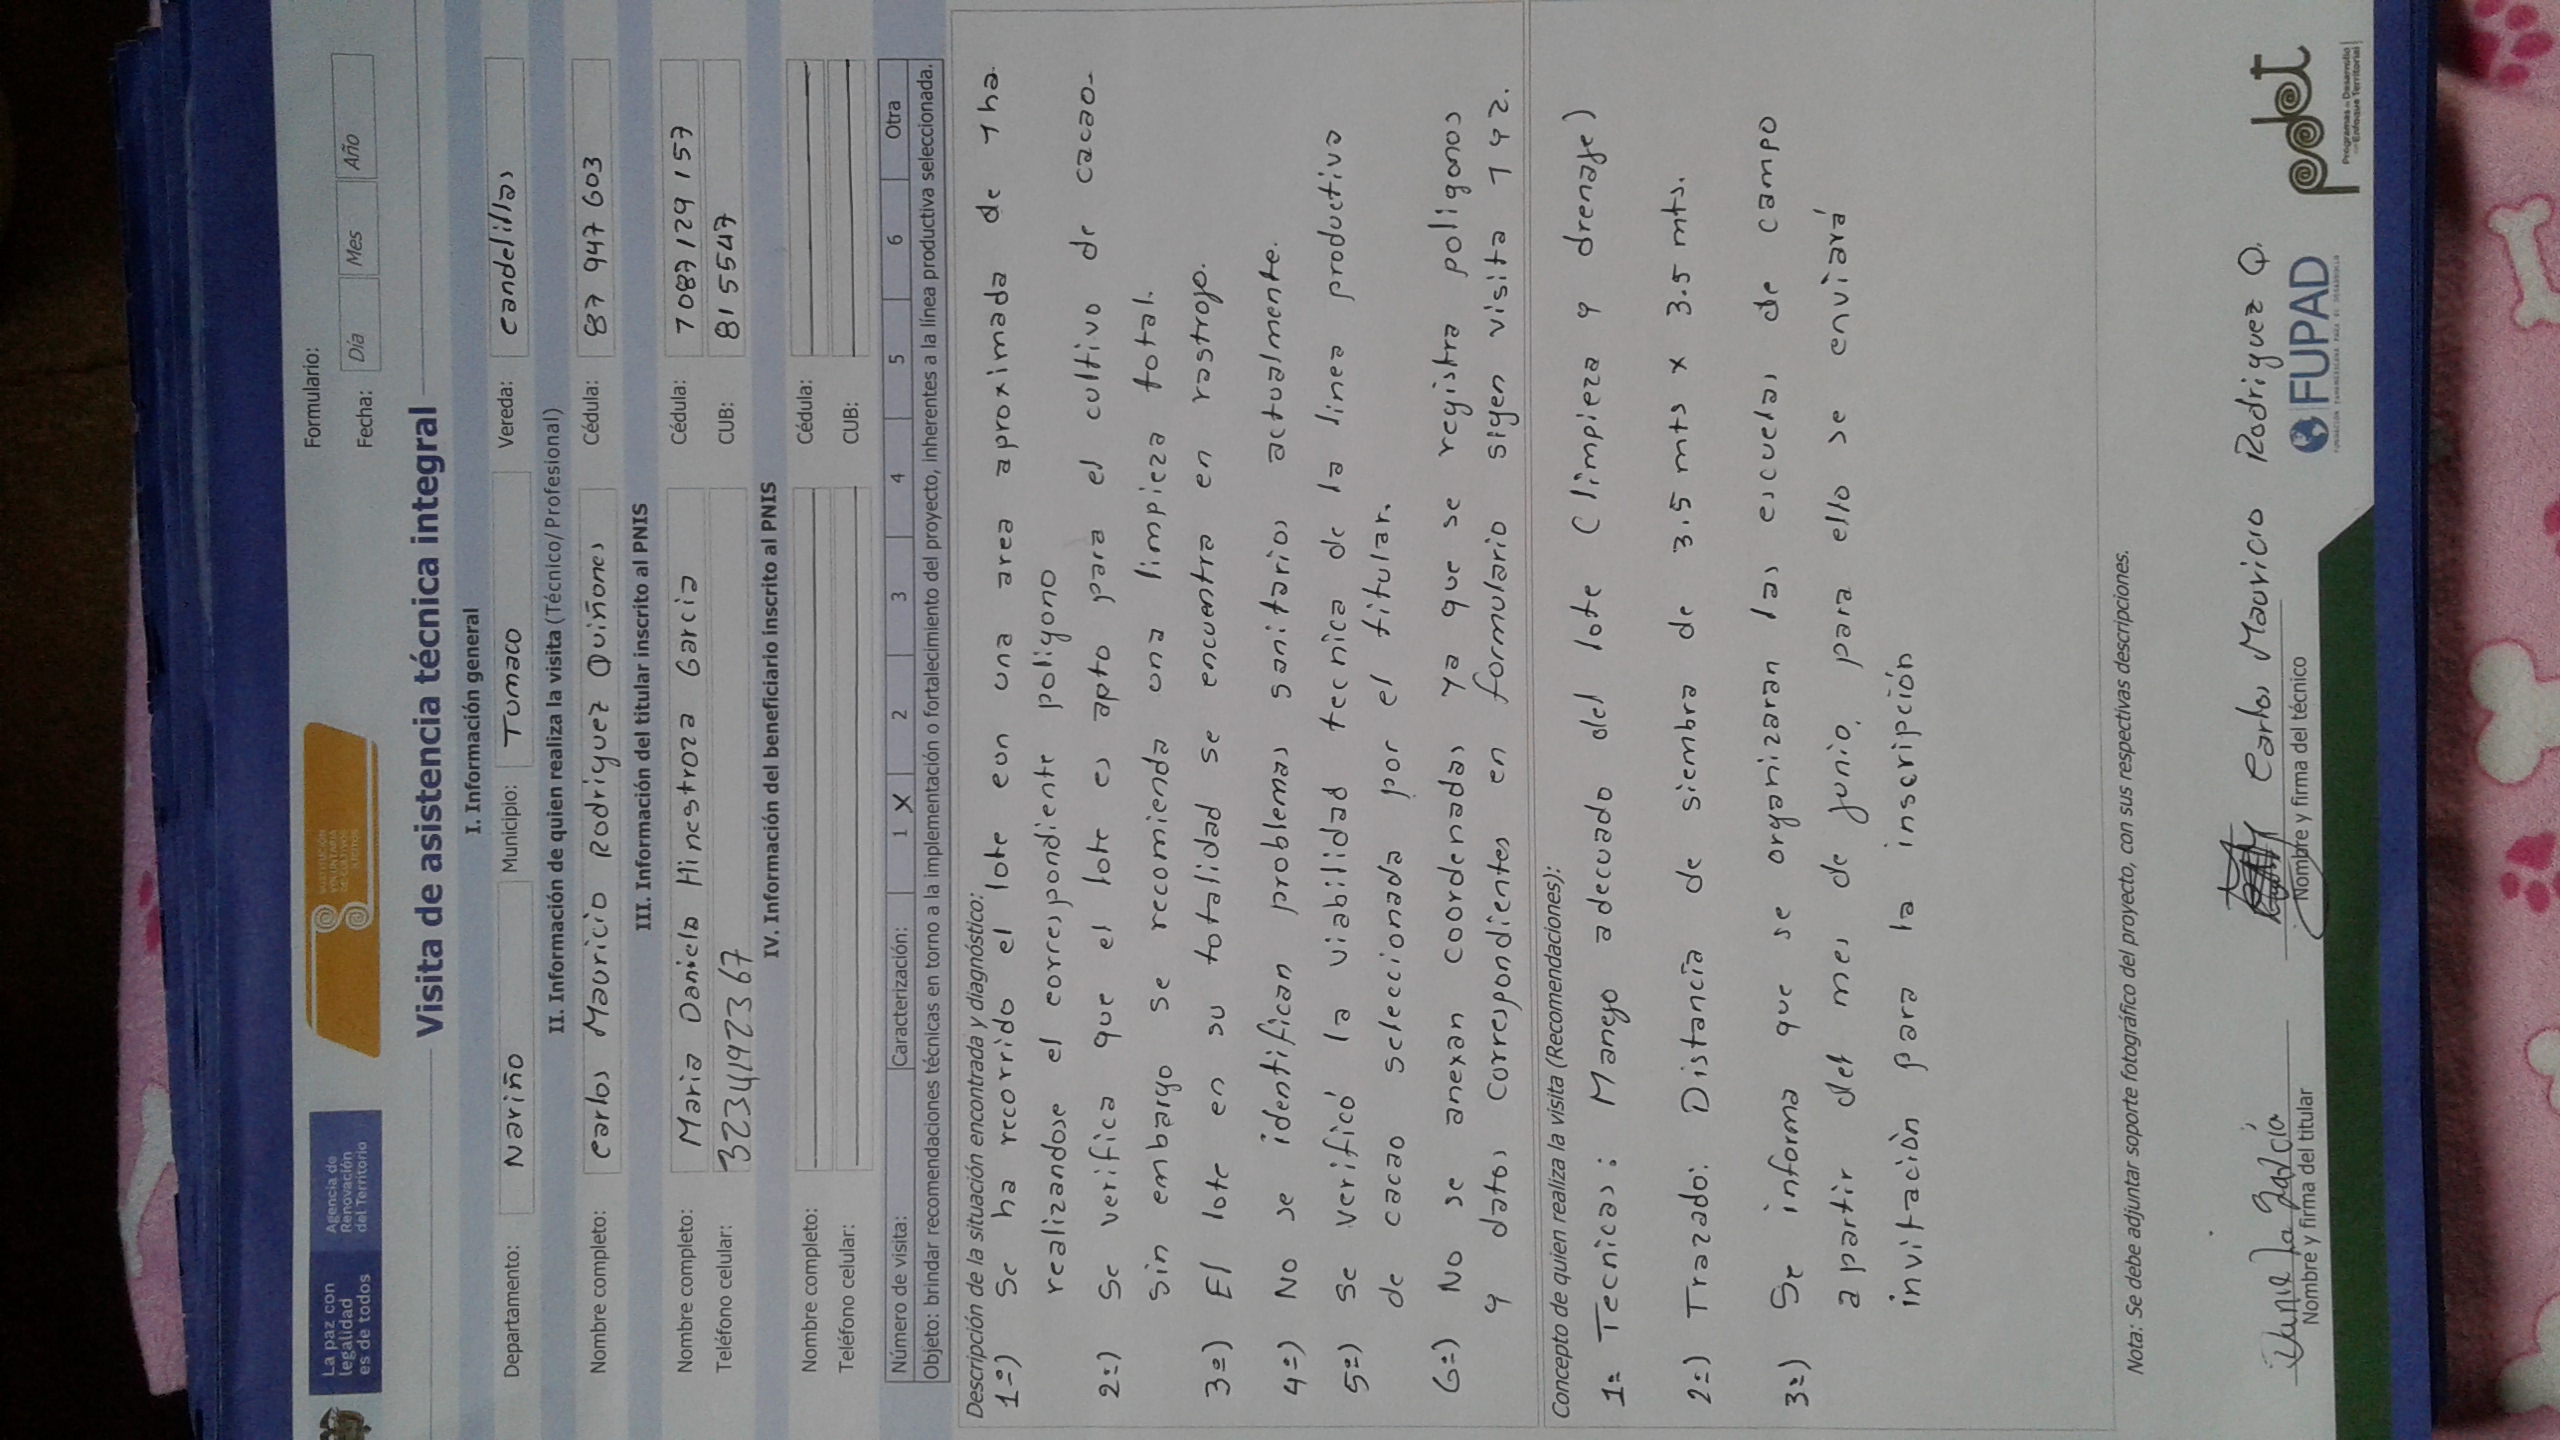 La paz con
legalidad
es de todos
Agencia de
Renovación
del Territorio
SUSTITUCIÓN
VOLUNTARIA
DE CULTIVOS
ILÍCITOS
Formulario:
Fecha: Día Mes Año
Visita de asistencia técnica integral
I. Información general
Departamento: Nariño Municipio: Tumaco Vereda: candelillas
II. Información de quien realiza la visita (Técnico/Profesional)
Nombre completo: carlos Mauricio Rodriguez Quiñones Cédula: 87 947 603
III. Información del titular inscrito al PNIS
Nombre completo: Maria Daniela Hinestroza Garcia Cédula: 1087129157
Teléfono celular: 3234192367 CUB: 8155547
IV. Información del beneficiario inscrito al PNIS
Nombre completo: Cédula:
Teléfono celular: CUB:
Número de visita: Caracterización: 1 X 2 3 4 5 6 Otra
Objeto: brindar recomendaciones técnicas en torno a la implementación o fortalecimiento del proyecto, inherentes a la línea productiva seleccionada.
Descripción de la situación encontrada y diagnóstico:
1º) Se ha recorrido el lote con una area aproximada de 1 ha.
realizandose el correspondiente poligono
2º) Se verifica que el lote es apto para el cultivo de cacao-
sin embargo se recomienda una limpieza total.
3º) El lote en su totalidad se encuentra en rastrojo.
4º) No se identifican problemas sanitarios actualmente.
5º) Se verificó la viabilidad tecnica de la linea productiva
de cacao seleccionada por el titular.
6º) No se anexan coordenadas ya que se registra poligonos
y datos correspondientes en formulario sigen visita 1 y 2.
Concepto de quien realiza la visita (Recomendaciones):
1º Tecnicas: Manejo adecuado del lote (limpieza y drenaje)
2º) Trazado: Distancia de siembra de 3.5 mts x 3.5 mts.
3º) Se informa que se organizaran las escuelas de campo
a partir del mes de junio, para ello se enviará
invitación para la inscripción
Nota: Se debe adjuntar soporte fotográfico del proyecto, con sus respectivas descripciones.
Daniela García
Nombre y firma del titular
Carlos Mauricio Rodriguez Q.
Nombre y firma del técnico
FUPAD
FUNDACIÓN PANAMERICANA PARA EL DESARROLLO
pdet
Programas de Desarrollo
con Enfoque Territorial